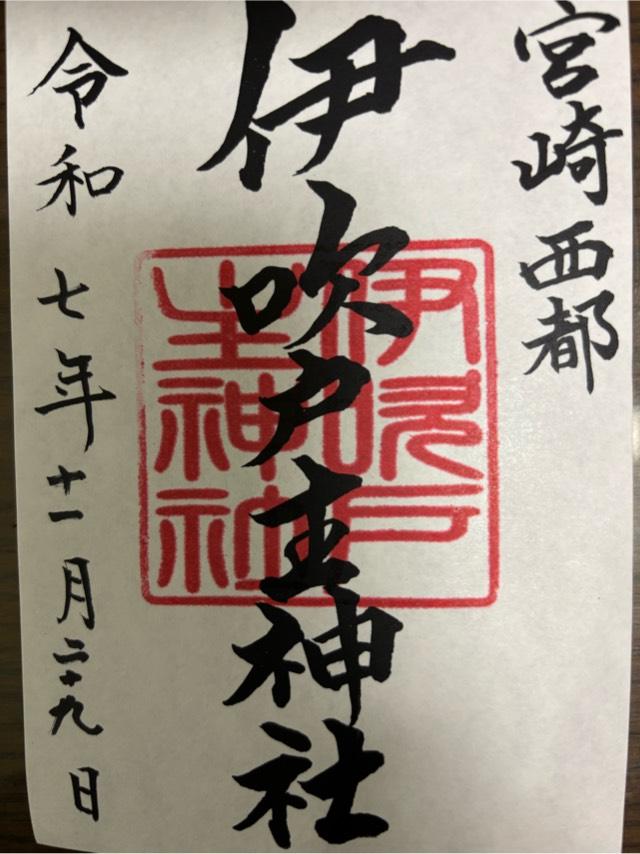 宮崎西都
伊吹戸主神社
伊吹戸
主神社
令和七年十一月二十九日